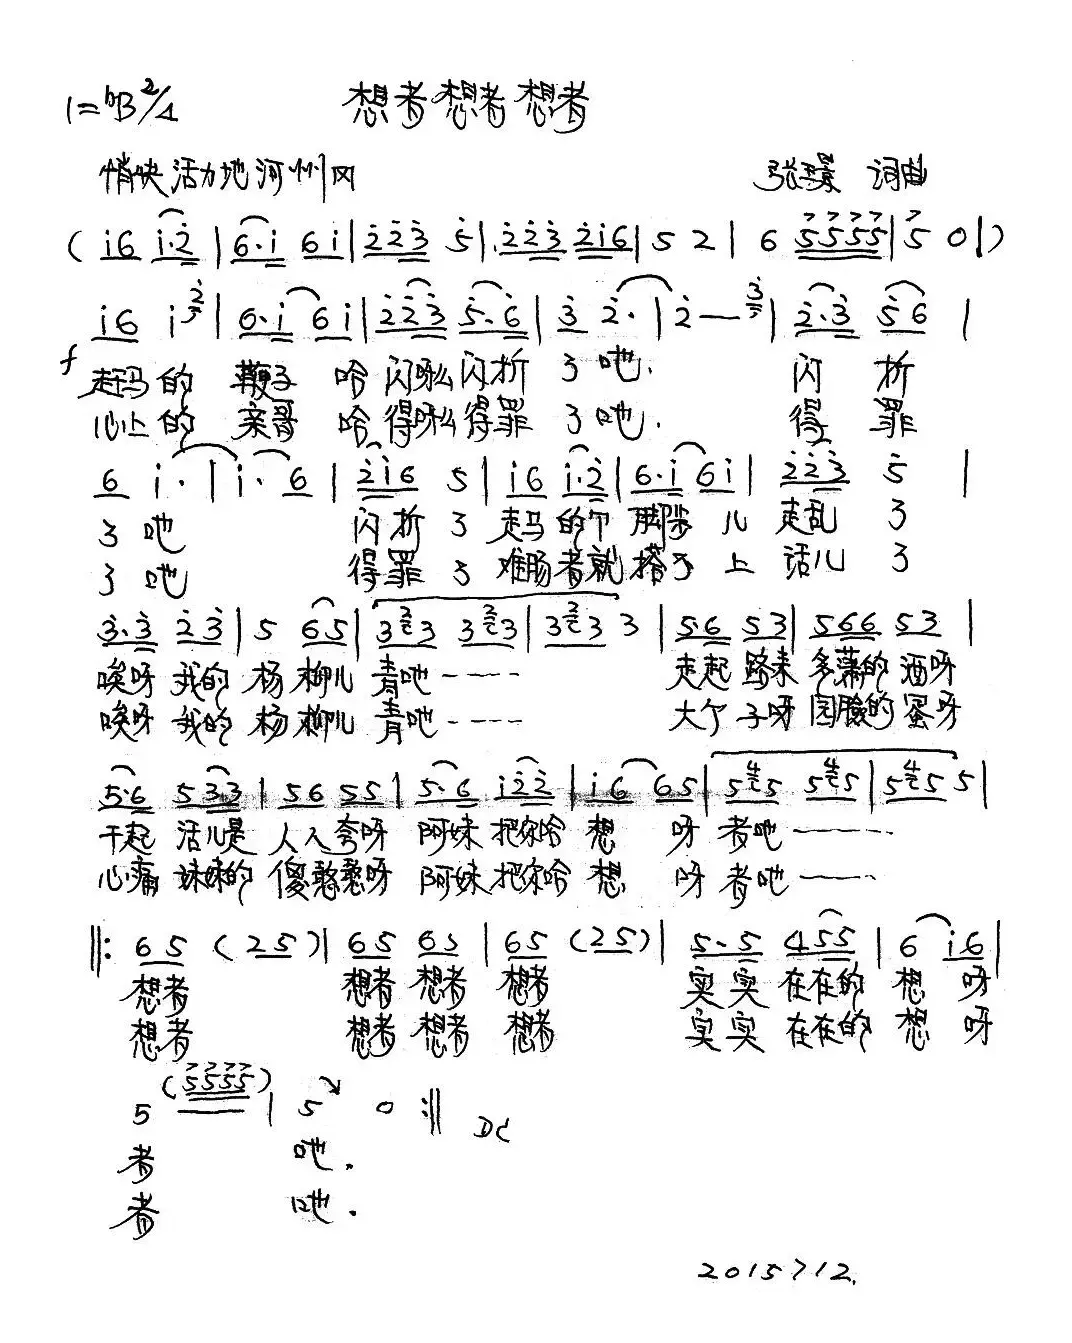 1=♭B 2/4 想者想者想者
悄快活力地河州风 张璟 词曲
( i6 i·2 | 6·i 6i | 223 5 | 223 2i6 | 5 2 | 6 5555 | 5 0 | )
i6 i | 6·i 6i | 223 5·6 | 3 2· | 2 — | 2·3 56 |
f 走马的 鞭子 哈 闪呀么闪折 了吔. 闪 折
心上的 亲哥 哈 得呀么得罪 了吔. 得 罪
6 i· | i· 6 | 2i6 5 | i6 i·2 | 6·i 6i | 223 5 |
了吔 闪折了 走马的个脚步 儿 走乱 了
了吔 得罪了 难肠者就搭了 上 话儿 了
3·3 23 | 5 65 | 323 323 | 323 3 | 5·6 53 | 566 53 |
唉呀 我的 杨柳儿 青吔---- 走起 路来 多藻的 洒呀
唉呀 我的 杨柳儿 青吔---- 大个 子呀 园脸的 蛋呀
5·6 533 | 56 55 | 5·6 i22 | i6 65 | 545 545 | 545 5 |
干起 活儿是 人人夸呀 阿妹 把你哈 想 呀 者吔----
心痛 妹妹的 傻憨憨呀 阿妹 把你哈 想 呀 者吔----
‖: 65 (25) | 65 65 | 65 (25) | 5·5 455 | 6 i6 |
想者 想者 想者 想者 实实 在在的 想 呀
想者 想者 想者 想者 实实 在在的 想 呀
5 (5555) | 5 0 :‖ DC
者 吔.
者 吔.
2015 7 12.